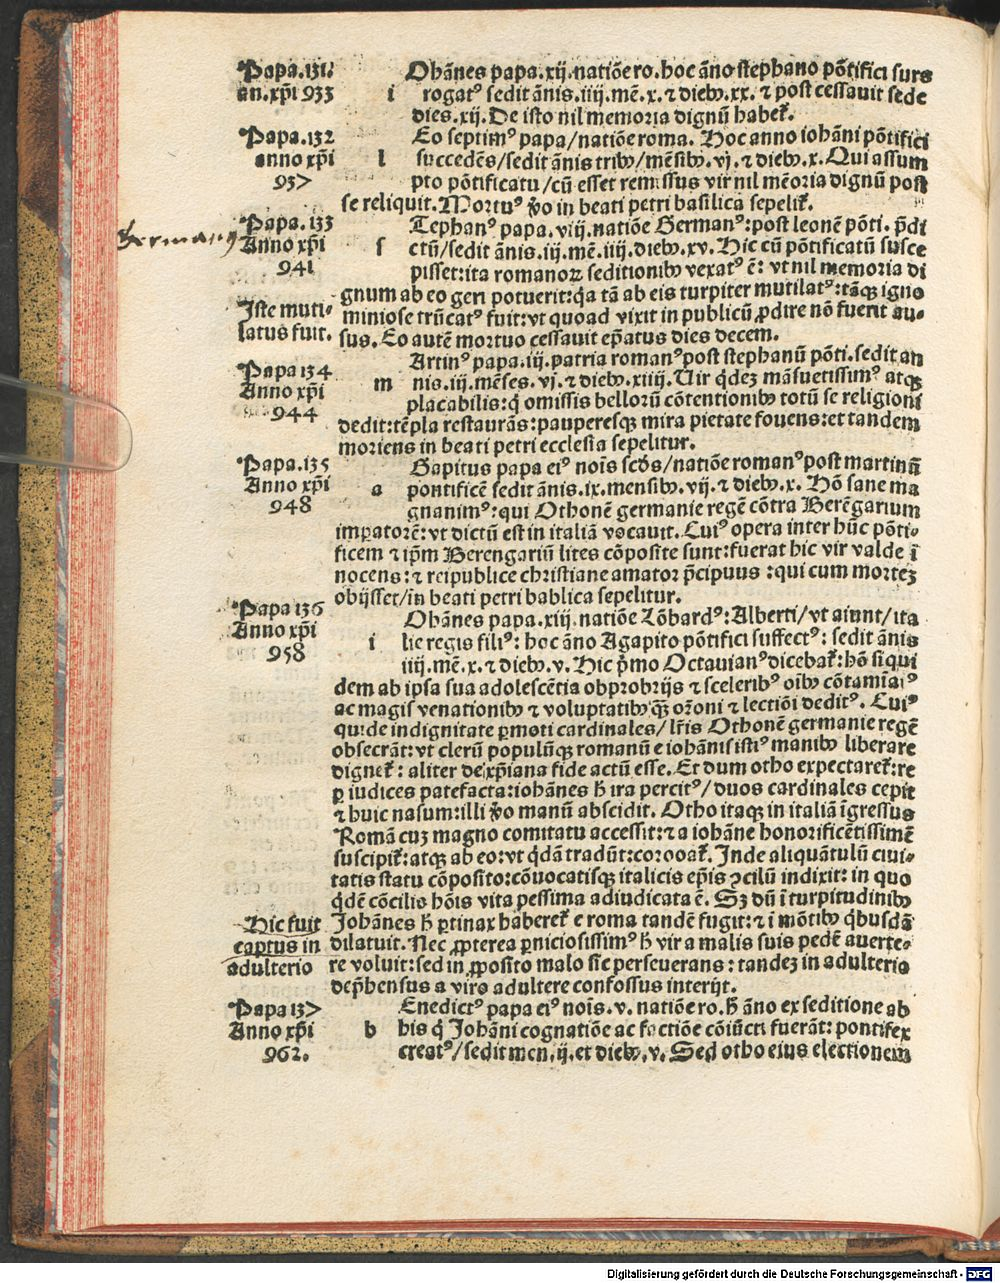 Papa.131.
an.xp̄i 933
i
Ohānes papa.xij.natiōe ro.hoc āno stephano pōtifici surs
rogatꝰ sedit ānis.iiij.mē.x.⁊ diebꝰ.xx.⁊ post cessauit sede
dies.xij.De isto nil memoria dignū habet̄.
Papa.132
anno xp̄i
937
l
Eo septimꝰ papa/natiōe roma. Hoc anno iohāni pōtifici
succedēs/sedit ānis tribꝰ/mēsibꝰ.vj.⁊ diebꝰ.x.Qui assum
pto pōtificatu/cū esset remissus vir nil mēoria dignū post
se reliquit.Mortuꝰ ꝟo in beati petri basilica sepelit̄.
Papa.133
Anno xp̄i
941
Germanꝰ
s
Tephanꝰ papa.viij.natiōe Germanꝰ:post leonē pōti.p̄di
ctū/sedit ānis.iij.mē.iiij.diebꝰ.xv. Hic cū pōtificatū susce
pisset:ita romanoꝝ seditionibꝰ vexatꝰ ē: vt nil memoria di
gnum ab eo geri potuerit:q̇a tā ab eis turpiter mutilatꝰ:tāqꝫ igno
miniose trūcatꝰ fuit:vt quoad vixit in publicū ꝓdire nō fuerit au-
sus.Eo autē mortuo cessauit ep̄atus dies decem.
Iste muti-
latus fuit.
Papa 134
Anno xp̄i
944
m
Artinꝰ papa.iij.patria romanꝰ post stephanū pōti.sedit an
nis.iij.mēses.vj.⁊ diebꝰ.xiiij.Uir q̇dez māsuetissimꝰ atqꝫ
placabilis:q̇ omissis bellorū cōtentionibꝰ totū se religioni
dedit:tēpla restaurās:pauperesqꝫ mira pietate fouens:et tandem
moriens in beati petri ecclesia sepelitur.
Papa.135
Anno xp̄i
948
a
Gapitus papa eiꝰ noīs scd̄s/natiōe romanꝰ post martinū
pontificē sedit ānis.ix.mensibꝰ.vij.⁊ diebꝰ.x. Hō sane ma
gnanimꝰ:qui Othonē germanie regē cōtra Berēgarium
imꝑatorē:vt dictū est in italiā vocauit.Cuiꝰ opera inter hūc pōti-
ficem ⁊ ip̄m Berengariū lites cōposite sunt:fuerat hic vir valde ī
nocens:⁊ reipublice christiane amator p̄cipuus :qui cum mortez
obijsset/in beati petri bablica sepelitur.
Papa 136
Anno xp̄i
958
i
Ohānes papa.xiij.natiōe Lōbardꝰ:Alberti/vt aiunt/ita
lie regis filiꝰ: hoc āno Agapito pōtifici suffectꝰ: sedit ānis
iiij.mē.x.⁊ diebꝰ.v. Hic p̄mo Octauianꝰ dicebat̄:hō siqui
dem ab ipsa sua adolescētia obprobrijs ⁊ sceleribꝰ oībꝰ cōtamīaꝰ
ac magis venationibꝰ ⁊ voluptatibꝰ q̄ꝫ or̄oni ⁊ lectiōi deditꝰ. Cuiꝰ
quide indignitate ꝑmoti cardinales/lr̄is Othonē germanie regē
obsecrāt:vt clerū populūqꝫ romanū e iohānis istiꝰ manibꝰ liberare
dignet̄: aliter de xp̄iana fide actū esse. Et dum otho expectaret̄:re
ꝑ iudices patefacta:iohānes h̄ ira percitꝰ/duos cardinales cepit
⁊ huic nasum:illi ꝟo manū abscidit. Otho itaqꝫ in italiā īgressus
Romā cuz magno comitatu accessit:⁊ a iohāne honorificētissimē
suscipit̄:atqꝫ ab eo:vt q̇dā tradūt:corooat̄. Inde aliquātulū ciui-
tatis statu cōposito:cōuocatisqꝫ italicis ep̄is ↄcilū indixit: in quo
q̇dē cōcilis hōis vita pessima adiudicata ē. Sꝫ dū ī turpitudinibꝰ
Johānes h̄ ꝑtinax haberet̄ e roma tandē fugit:⁊ ī mōtibꝰ q̇busdā
dilatuit.Nec ꝓpterea ꝑniciosissimꝰ h̄ vir a malis suis pedē auerte-
re voluit:sed in ꝓposito malo sic perseuerans: tandez in adulterio
dep̄hensus a viro adultere confossus interijt.
Hic fuit
captus in
adulterio
Papa 137
Anno xp̄i
962.
b
Enedictꝰ papa eiꝰ noīs.v. natiōe ro.h̄ āno ex seditione ab
his q̇ Johāni cognatiōe ac factiōe cōiūcti fuerāt: pontifex
creatꝰ/sedit men.ij.et diebꝰ.v. Sed otho eius electionem
Digitalisierung gefördert durch die Deutsche Forschungsgemeinschaft - DFG